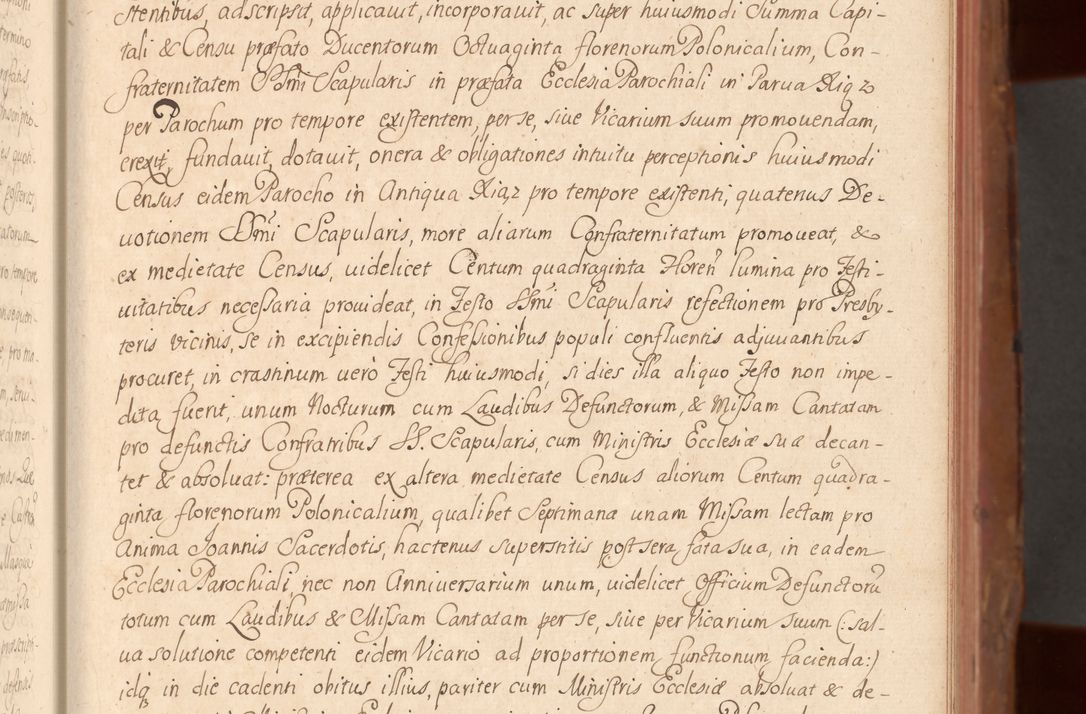 stentibus, adscripsit, applicauit, incorporauit, ac super huiusmodi Summa Capi-
tali & Censu præfato Ducentorum Octuaginta florenorum Polonicalium, Con-
fraternitatem SSmi Scapularis in præfata Ecclesia Parochiali in Parua Xiąz
per Parochum pro tempore existentem, per se, siue Vicarium suum promouendam,
erexit, fundauit, dotauit, onera & obligationes intuitu perceptionis huiusmodi
Census eidem Parocho in Antiqua Xiąz pro tempore existenti, quatenus De-
uotionem SSmi Scapularis, more aliarum Confraternitatum promoueat, &
ex medietate Census, uidelicet Centum quadraginta Floren lumina pro Festi-
uitatibus necessaria prouideat, in Festo SSmi Scapularis refectionem pro Presby-
teris vicinis, se in excipiendis Confessionibus populi confluentis adjuuantibus
procuret, in crastinum uerò Festi huiusmodi, si dies illa aliquo Festo non impe-
dita fuerit, unum Nocturum cum Laudibus Defunctorum, & Missam Cantatam
pro defunctis Confratribus SS. Scapularis, cum Ministris Ecclesiæ suæ decan-
tet & absoluat: præterea ex altera medietate Census aliorum Centum quadra-
ginta florenorum Polonicalium, qualibet Septimana unam Missam lectam pro
Anima Joannis Sacerdotis, hactenus superstitis post sera fata sua, in eadem
Ecclesia Parochiali, nec non Anniversarium unum, uidelicet Officium Defunctorū
totum cum Laudibus & Missam Cantatam per se, siue per Vicarium suum (: sal-
ua solutione competenti eidem Vicario ad proportionem functionum facienda:)
idq in die cadenti obitus illius, pariter cum Ministris Ecclesiæ absoluat & de-